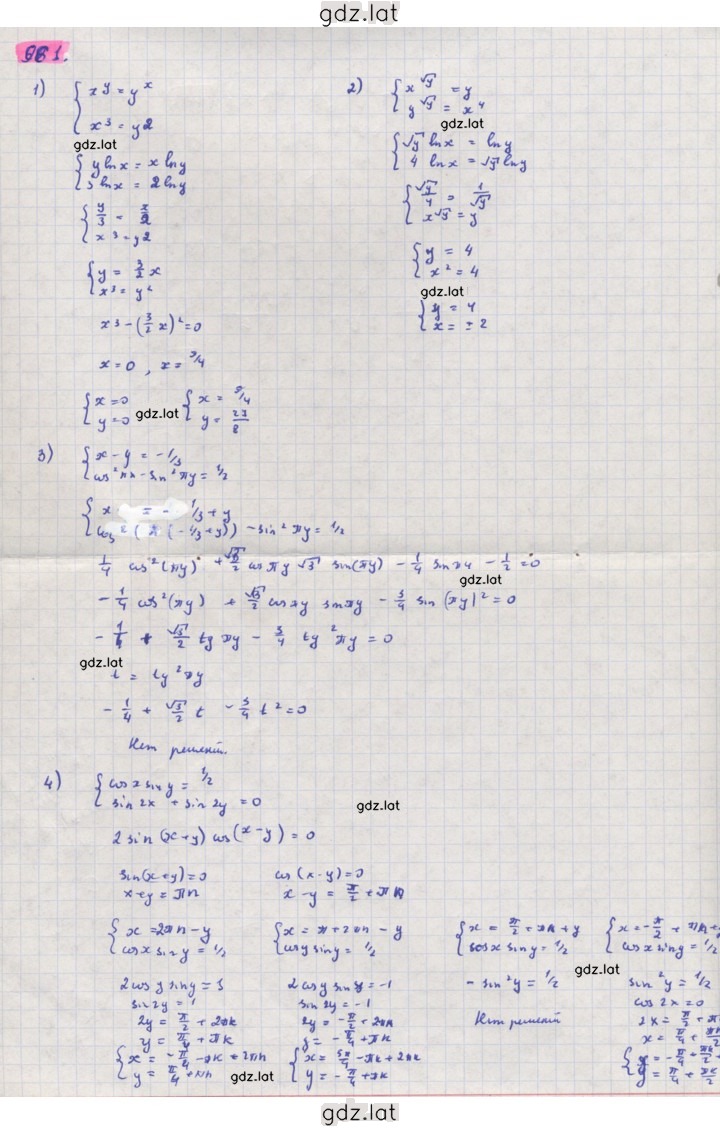 gdz.lat
981.
1) { x^y = y^x
x³ = y2
gdz.lat
{ y ln x = x ln y
3 ln x = 2 ln y
{ y/3 = x/2
x³ = y2
{ y = 3/2 x
x³ = y²
x³ - (3/2 x)² = 0
x = 0 , x = 9/4
{ x = 0
y = 0
gdz.lat
{ x = 9/4
y = 27/8
2) { x^√y = y
y^√y = x⁴
gdz.lat
{ √y ln x = ln y
4 ln x = √y ln y
{ √y/4 = 1/√y
x^√y = y
{ y = 4
x² = 4
gdz.lat
{ y = 4
x = ± 2
3) { x - y = -1/3
cos² πx - sin² πy = 1/2
{ x = - 1/3 + y
cos² (π (-1/3 + y)) - sin² πy = 1/2
1/4 cos² (πy) + √3/2 cos πy √3 sin(πy) - 1/4 sin πy - 1/2 = 0
gdz.lat
- 1/4 cos² (πy) + √3/2 cos πy sin πy - 3/4 sin (πy)² = 0
- 1/4 + √3/2 tg πy - 3/4 tg² πy = 0
gdz.lat
t = tg² πy
- 1/4 + √3/2 t - 3/4 t² = 0
Нет решений.
4) { cos x sin y = 1/2
sin 2x + sin 2y = 0
gdz.lat
2 sin (x+y) cos (x-y) = 0
sin(x+y) = 0
x+y = πn
cos (x-y) = 0
x - y = π/2 + πn
{ x = 2πn - y
cos x sin y = 1/2
{ x = π + 2πn - y
cos y sin y = 1/2
{ x = π/2 + πn + y
cos x sin y = 1/2
{ x = - π/2 + πn + y
cos x sin y = 1/2
gdz.lat
2 cos y sin y = 1
sin 2y = 1
2y = π/2 + 2πk
y = π/4 + πk
{ x = - π/4 - πk + 2πn
y = π/4 + πn
gdz.lat
2 cos y sin y = -1
sin 2y = -1
2y = - π/2 + 2πk
y = - π/4 + πk
{ x = 5π/4 - πk + 2πk
y = - π/4 + πk
- sin² y = 1/2
Нет решений
sin² y = 1/2
cos 2x = 0
2x = π/2 +
x = π/4 + πk/2
= - π/4 + πk/2
y = π/4 + πk/2
gdz.lat